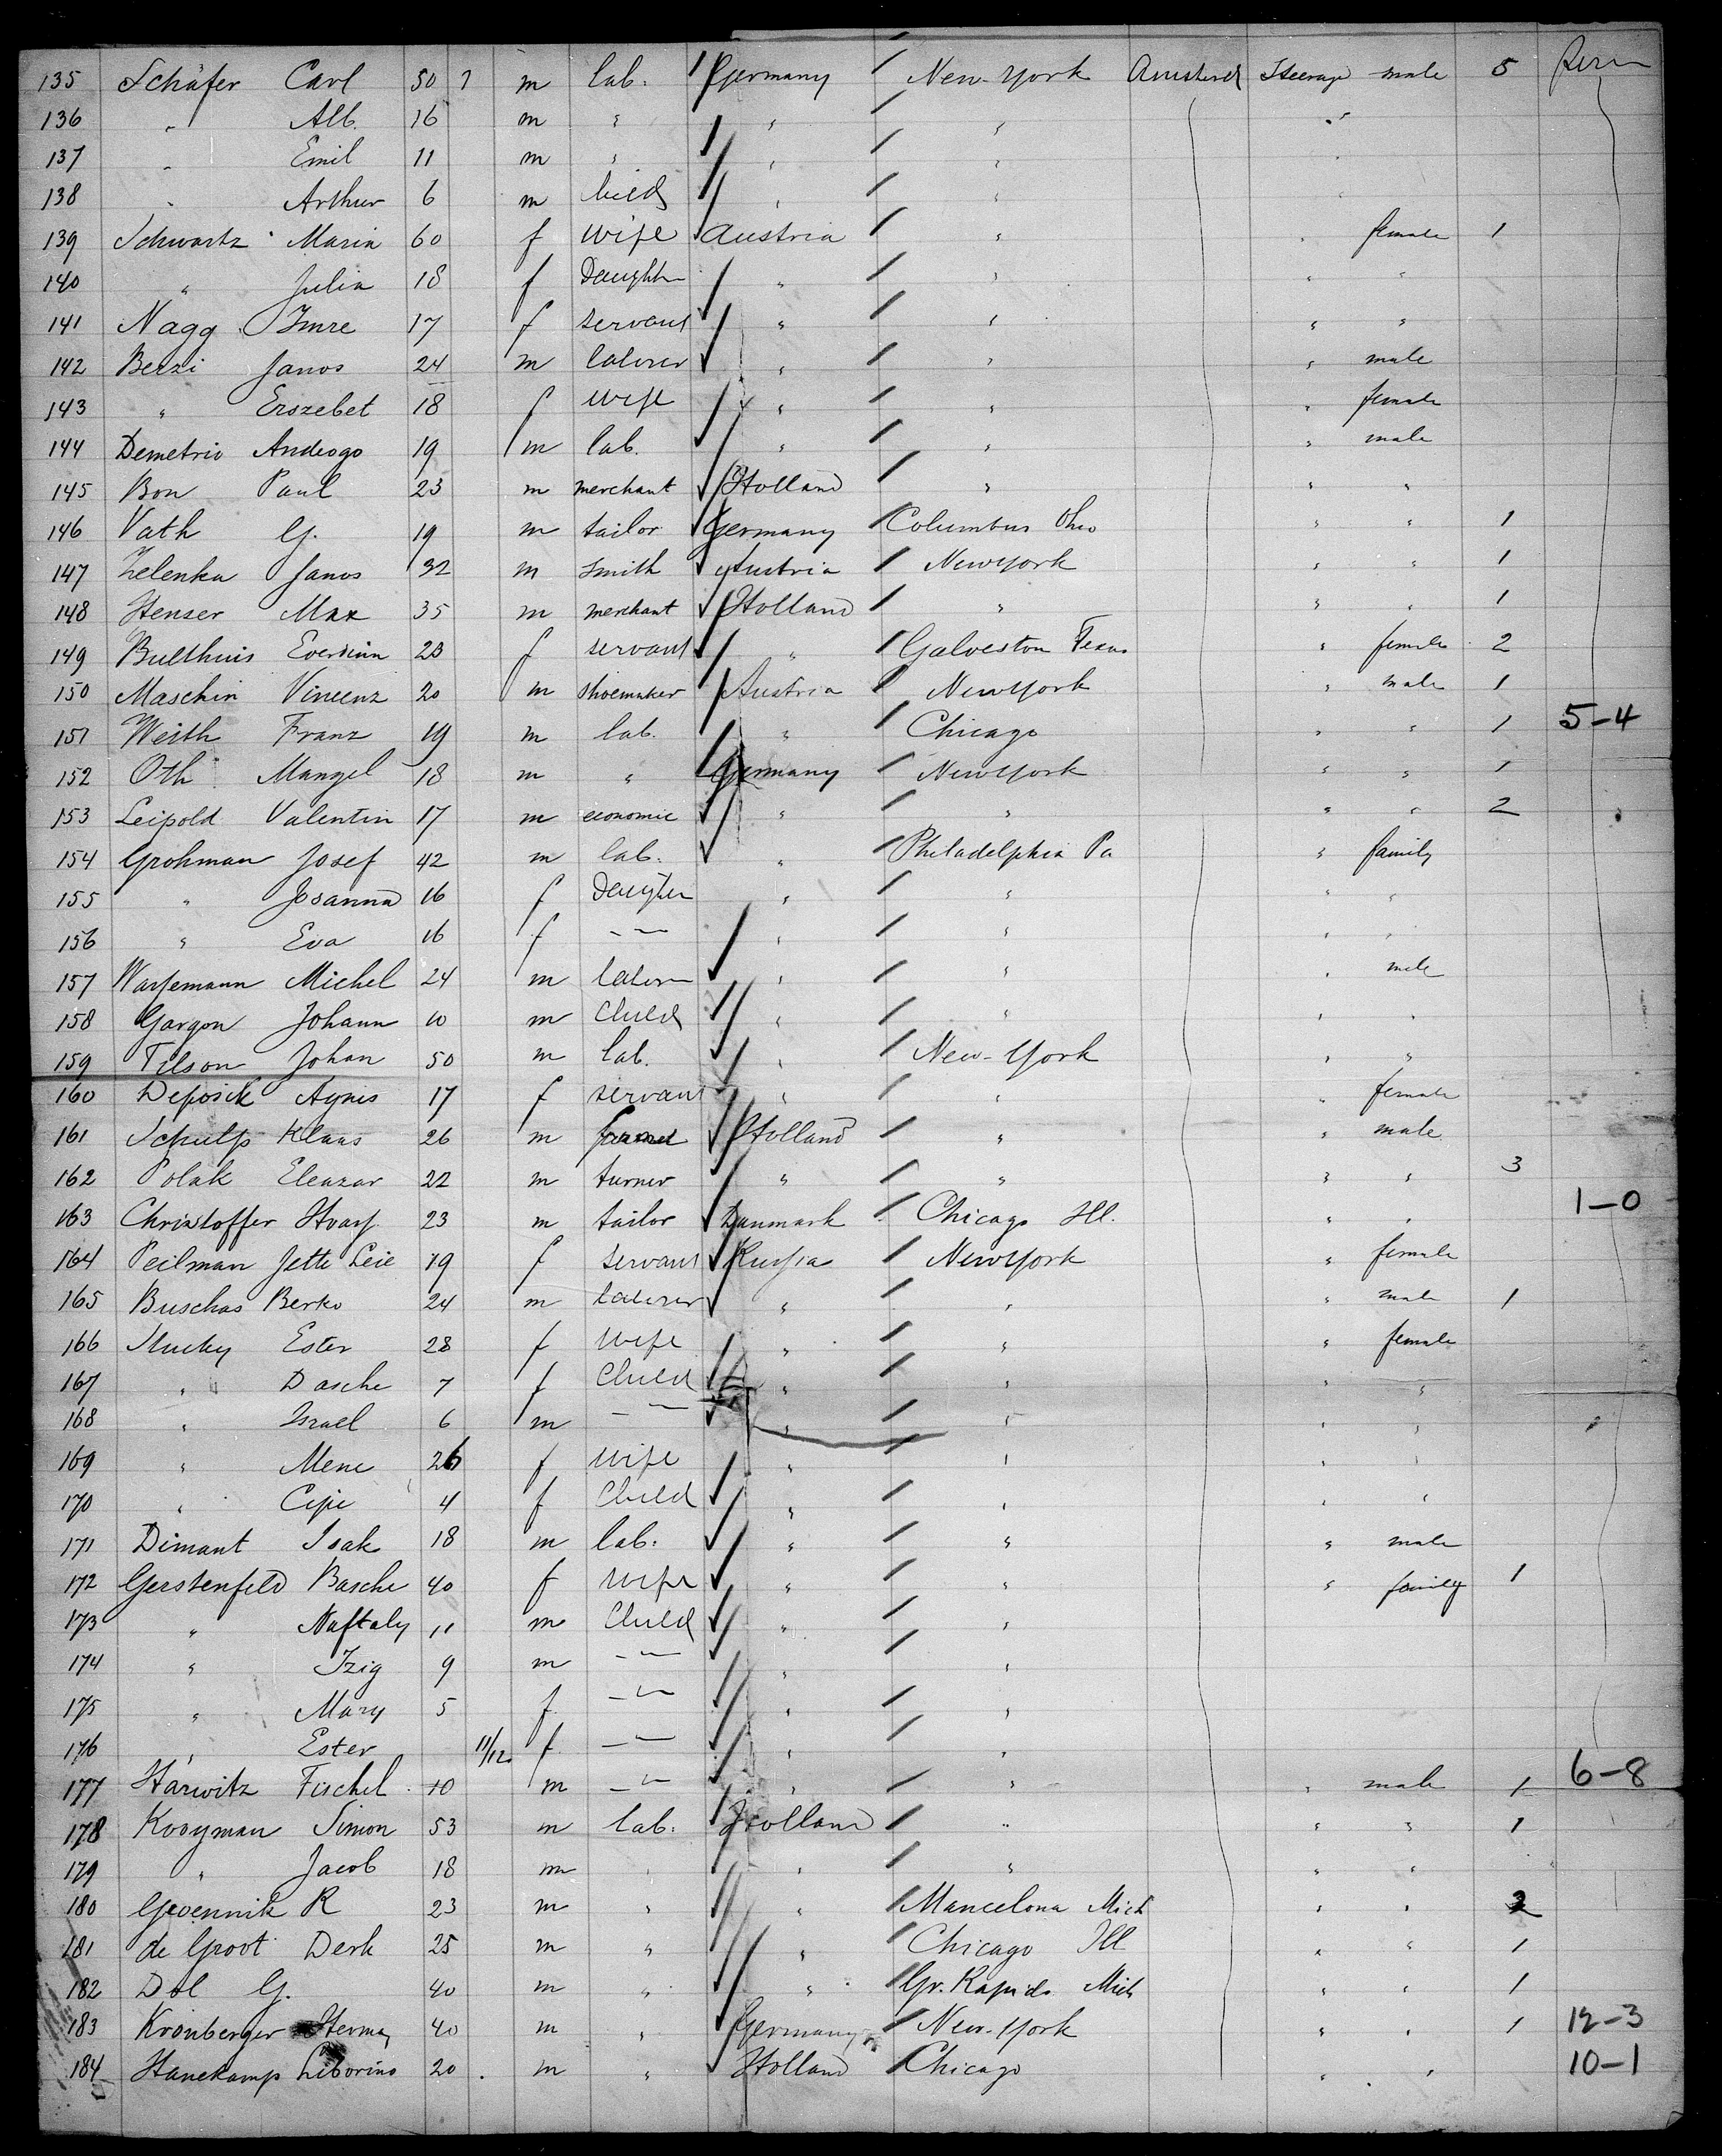 135 Schäfer Carl 50 m lab. Germany New-York Amsterd Steerage male 5
136 " Alb. 16 m " " "
137 " Emil 11 m " " "
138 " Arthur 6 m " "
139 Schwartz Maria 60 f wife Austria " " female 1
140 " Julia 18 f Daughter " " " "
141 Nagg Imre 17 f servant " " " "
142 Berzi Janos 24 m laborer " " " male
143 " Erszebet 18 f wife " " " female
144 Demetrio 19 m lab. " " " male
145 Bon Paul 23 m merchant Holland " " "
146 Vath G. 19 m tailor Germany Columbus Ohio " " 1
147 Zelenka Janos 32 m smith Austria New York " " 1
148 Henser Max 35 m merchant Holland " " " 1
149 Bulthuis 23 f servant " Galveston Texas " female 2
150 Maschin Vincenz 20 m shoemaker Austria New York " male 1
151 Weith Franz 19 m lab. " Chicago " " 1 5-4
152 Oth Mangel 18 m " Germany New York " " 1
153 Leipold Valentin 17 m economic " " " " 2
154 Grohman Josef 42 m lab. " Philadelphia Pa " family
155 " Josanna 16 f Daughter " " " "
156 " Eva 16 f -- " " " "
157 Michel 24 m " " " male
158 Gargon Johann 10 m Child " " " "
159 Tilson Johan 50 m lab. " New-York " "
160 Deposik Agnis 17 f servant " " " female
161 Schulp Klaas 26 m Holland " " male
162 Polak Eleazar 22 m turner " " " " 3
163 Christoffer 23 m tailor Danmark Chicago Ill. " " 1-0
164 Peilman Jette Leie 19 f servant Russia New York " female
165 Buschas Berko 24 m laborer " " " male 1
166 Ester 28 f wife " " " female
167 " Dasche 7 f Child " " " "
168 " Israel 6 m -- " " " "
169 " Mene 26 f wife " " " "
170 " Cipe 4 f Child " " " "
171 Dimant Isak 18 m lab. " " " male
172 Gerstenfeld Basche 40 f wife " " " family 1
173 " Naftaly 11 m Child " "
174 " Izig 9 m -- " "
175 " Mary 5 f -- " "
176 " Ester 11/12 f -- " "
177 Harwitz Fischel 10 m -- " " " male 1 6-8
178 Kooyman Simon 53 m lab. Holland " " " 1
179 " Jacob 18 m " " " " "
180 R 23 m " " Mancelona Mich " "
181 de Groot Derk 25 m " " Chicago Ill " " 1
182 Dol G. 40 m " " Gr. Rapids Mich " " 1
183 Kronberger Herman 40 m " Germany New-York " " 1 12-3
184 Hanekamp Liborius 20 m " Holland Chicago " " 10-1